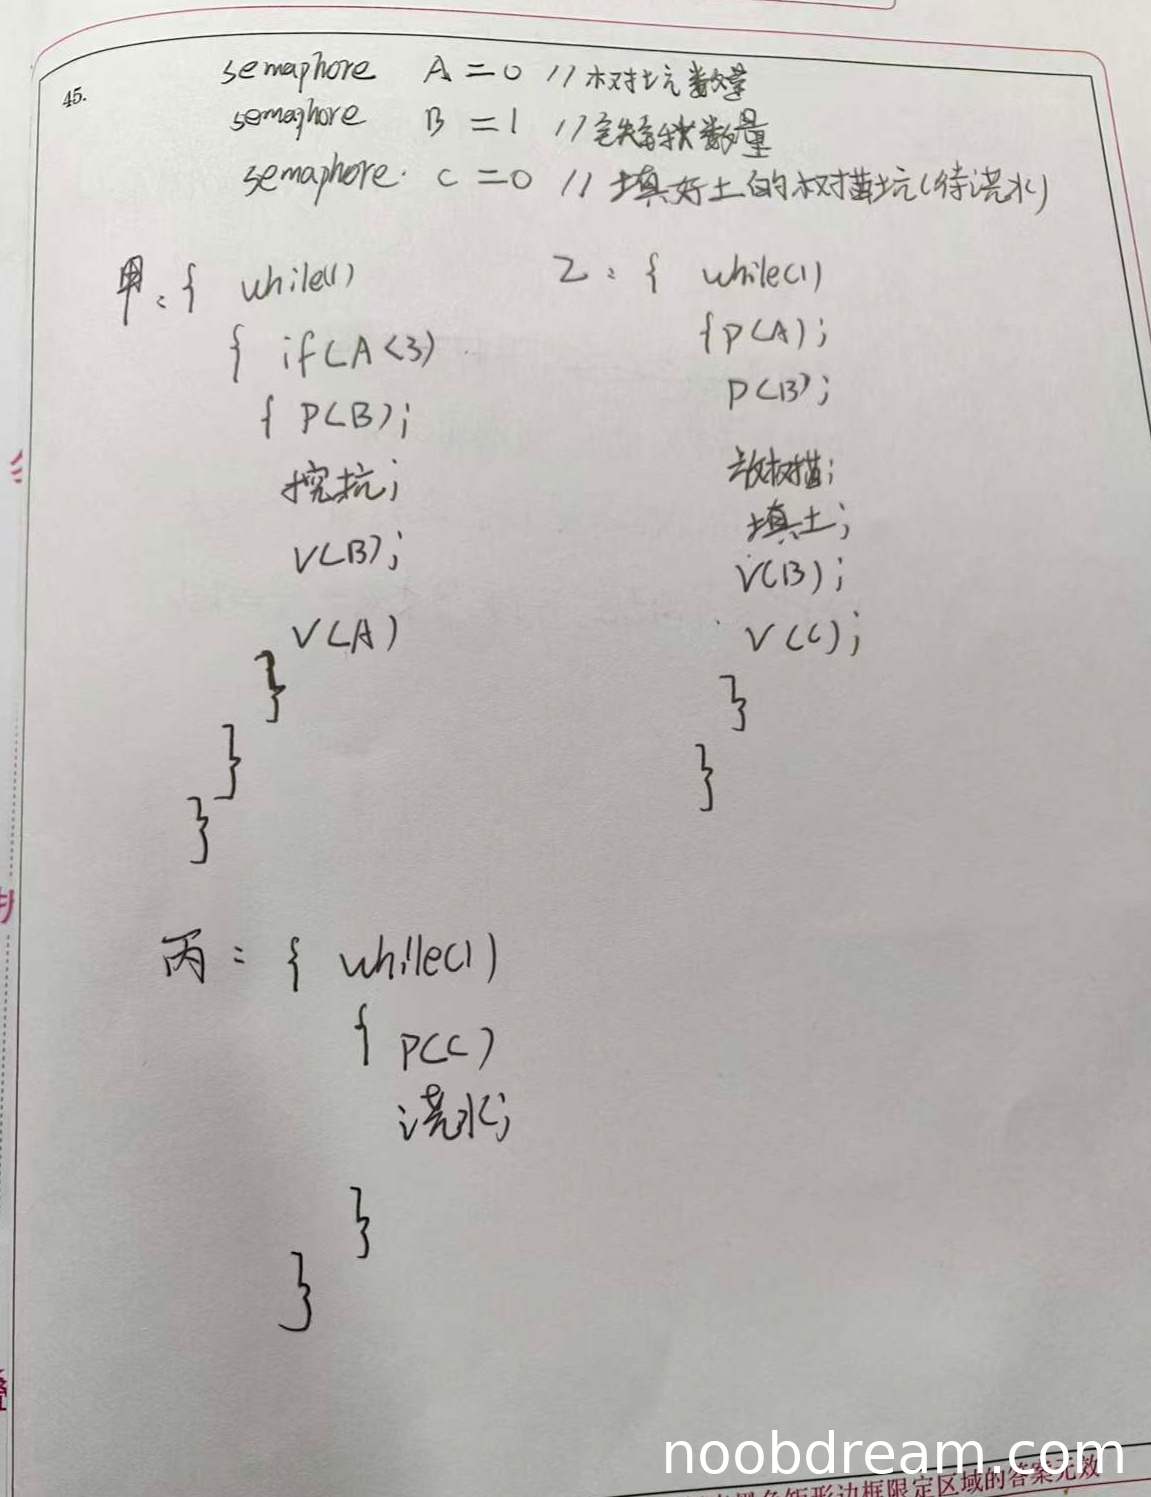 45.
semaphore A=0 //树坑数量
semaphore B=1 //铁锹数量
semaphore. C=0 //填好土的树苗坑(待浇水)
甲:{ while(1)
{ if(A<3)
{ P(B);
挖坑;
V(B);
V(A)
}
}
}
乙:{ while(1)
{P(A);
P(B);
放树苗;
填土;
V(B);
V(C);
}
}
丙:{ while(1)
{ P(C)
浇水;
}
}
noobdream.com
黑色矩形边框限定区域的答案无效